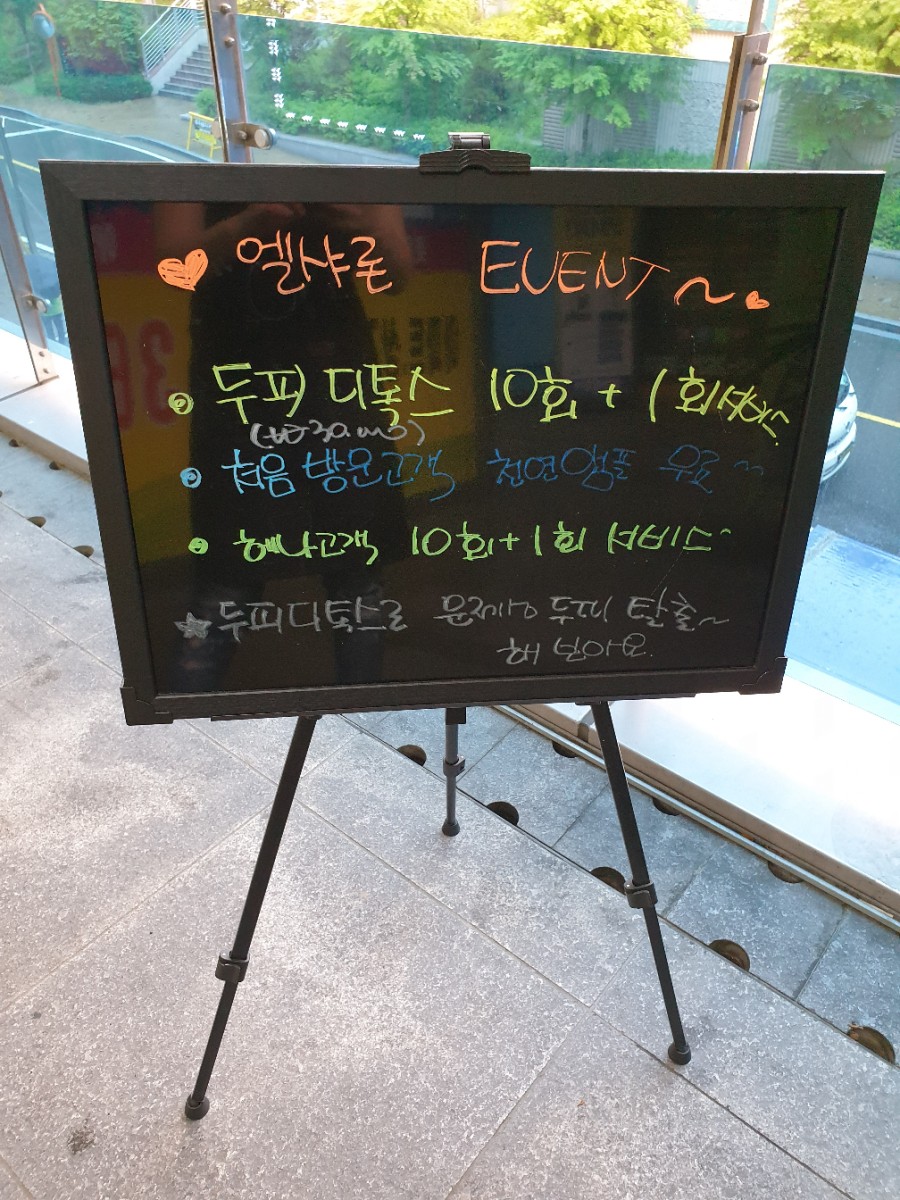 ♥ 엘샤론 EVENT ~ ♥
• 두피 디톡스 10회 + 1회 서비스
(₩30,000)
• 처음 방문고객 천연앰플 무료~
• 헤나고객 10회+1회 서비스~
★ 두피디톡스로 문제성 두피 탈출~
해 보아요.